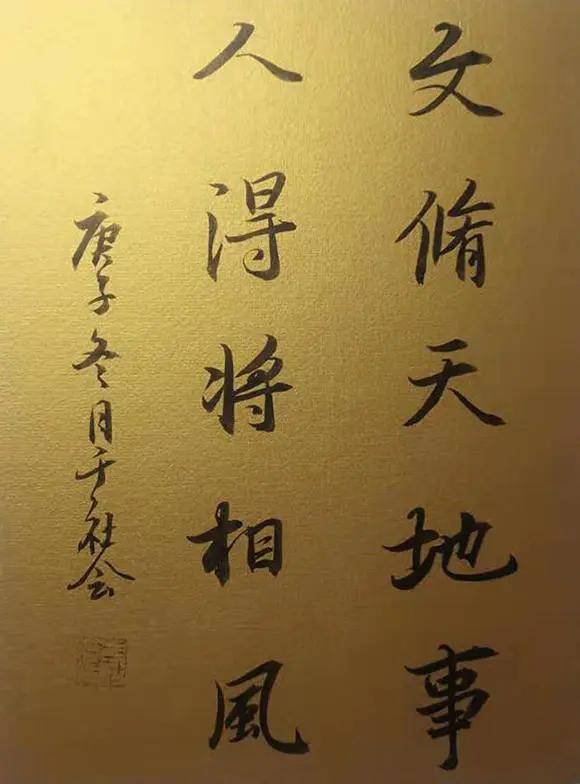 文脩天地事
人得将相風
庚子冬月于社会